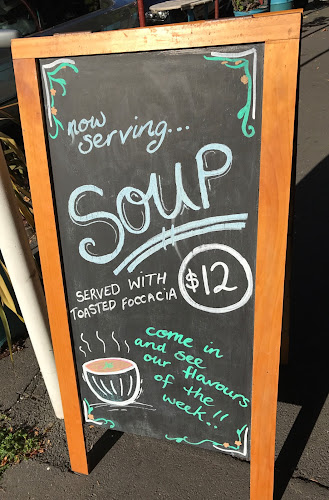 now
serving...
SOUP
SERVED WITH
TOASTED FOCCACIA
$12
come in
and see
our flavours
of the
week..!!